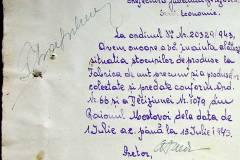 Economic.
La ordinul Dv. Nr. 20320/943,
Avem onoare a vă înainta alăturat
situația stocurilor de produse la
Fabrica de unt precum și a produselor
colectate și predate conform Ord.
Nr. 66 și a Deciziunei Nr. 1079 din
Raionul Mostovoi dela data de
1 Iulie a.c. până la 15 Iulie 1943.
Pretor,